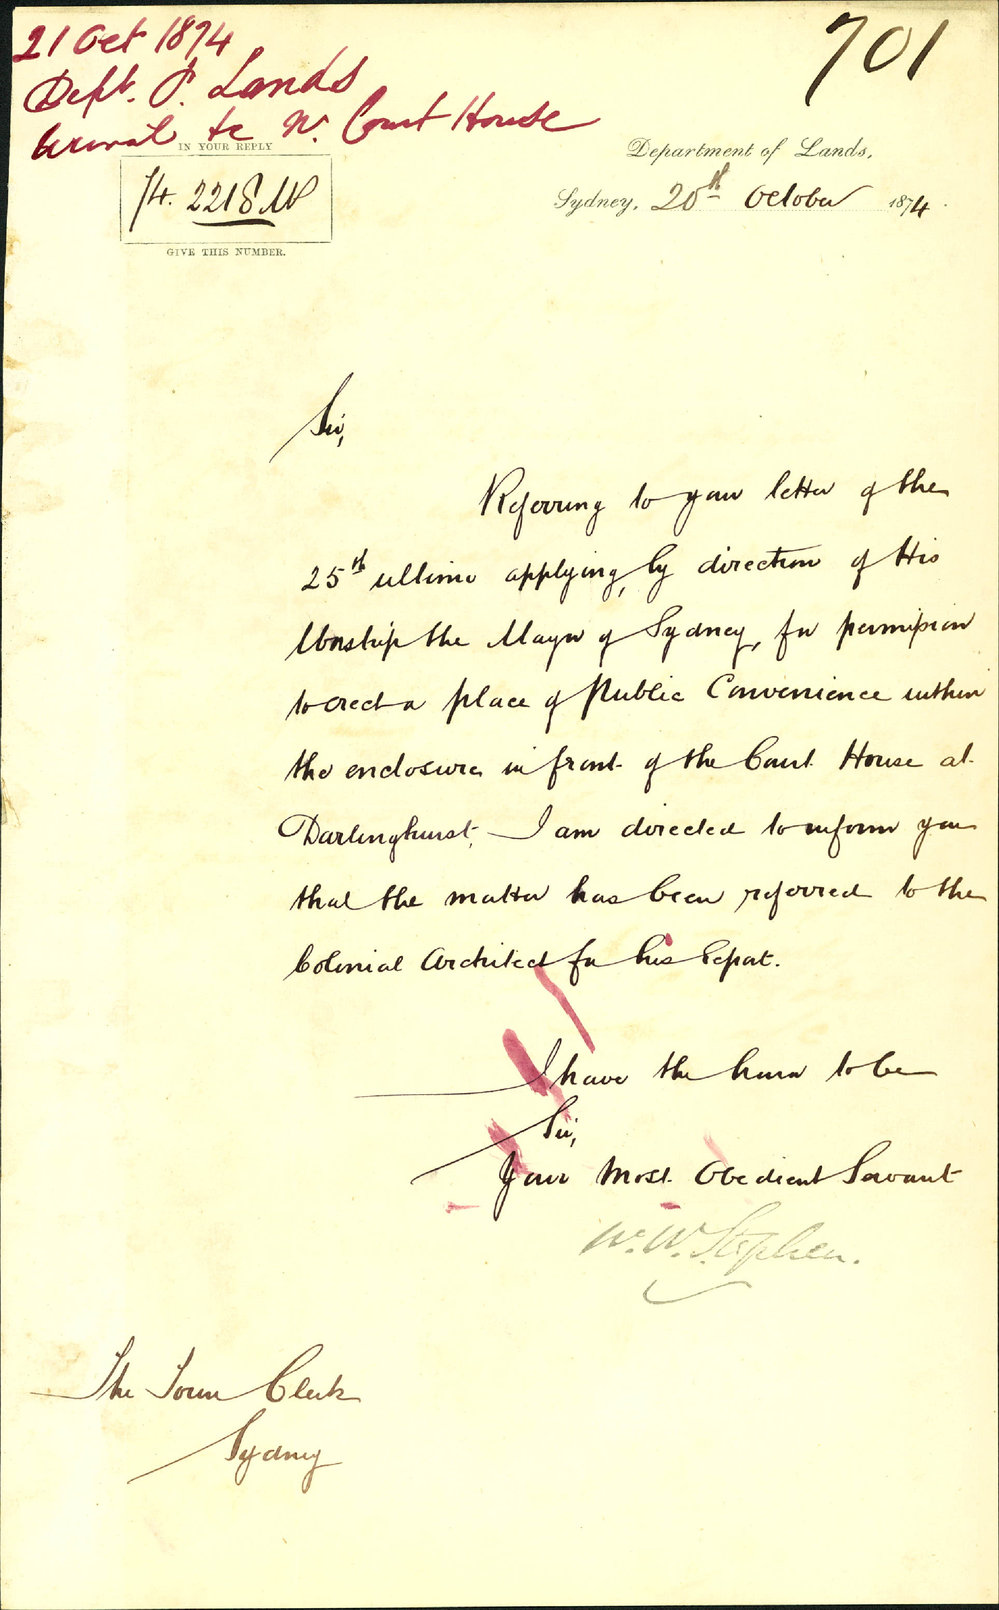 21 Oct 1874
701
Dept. of Lands
Urinal &c Nr. Court House
IN YOUR REPLY
74. 2218
GIVE THIS NUMBER.
Department of Lands,
Sydney, 20th October 1874.
Sir,
Referring to your letter of the
25th ultimo applying, by direction of His
Worship the Mayor of Sydney, for permission
to erect a place of Public Convenience within
the enclosure in front of the Court House at
Darlinghurst, I am directed to inform you
that the matter has been referred to the
Colonial Architect for his Report.
I have the honor to be
Sir,
Your Most Obedient Servant
W. W. Stephen.
The Town Clerk
Sydney